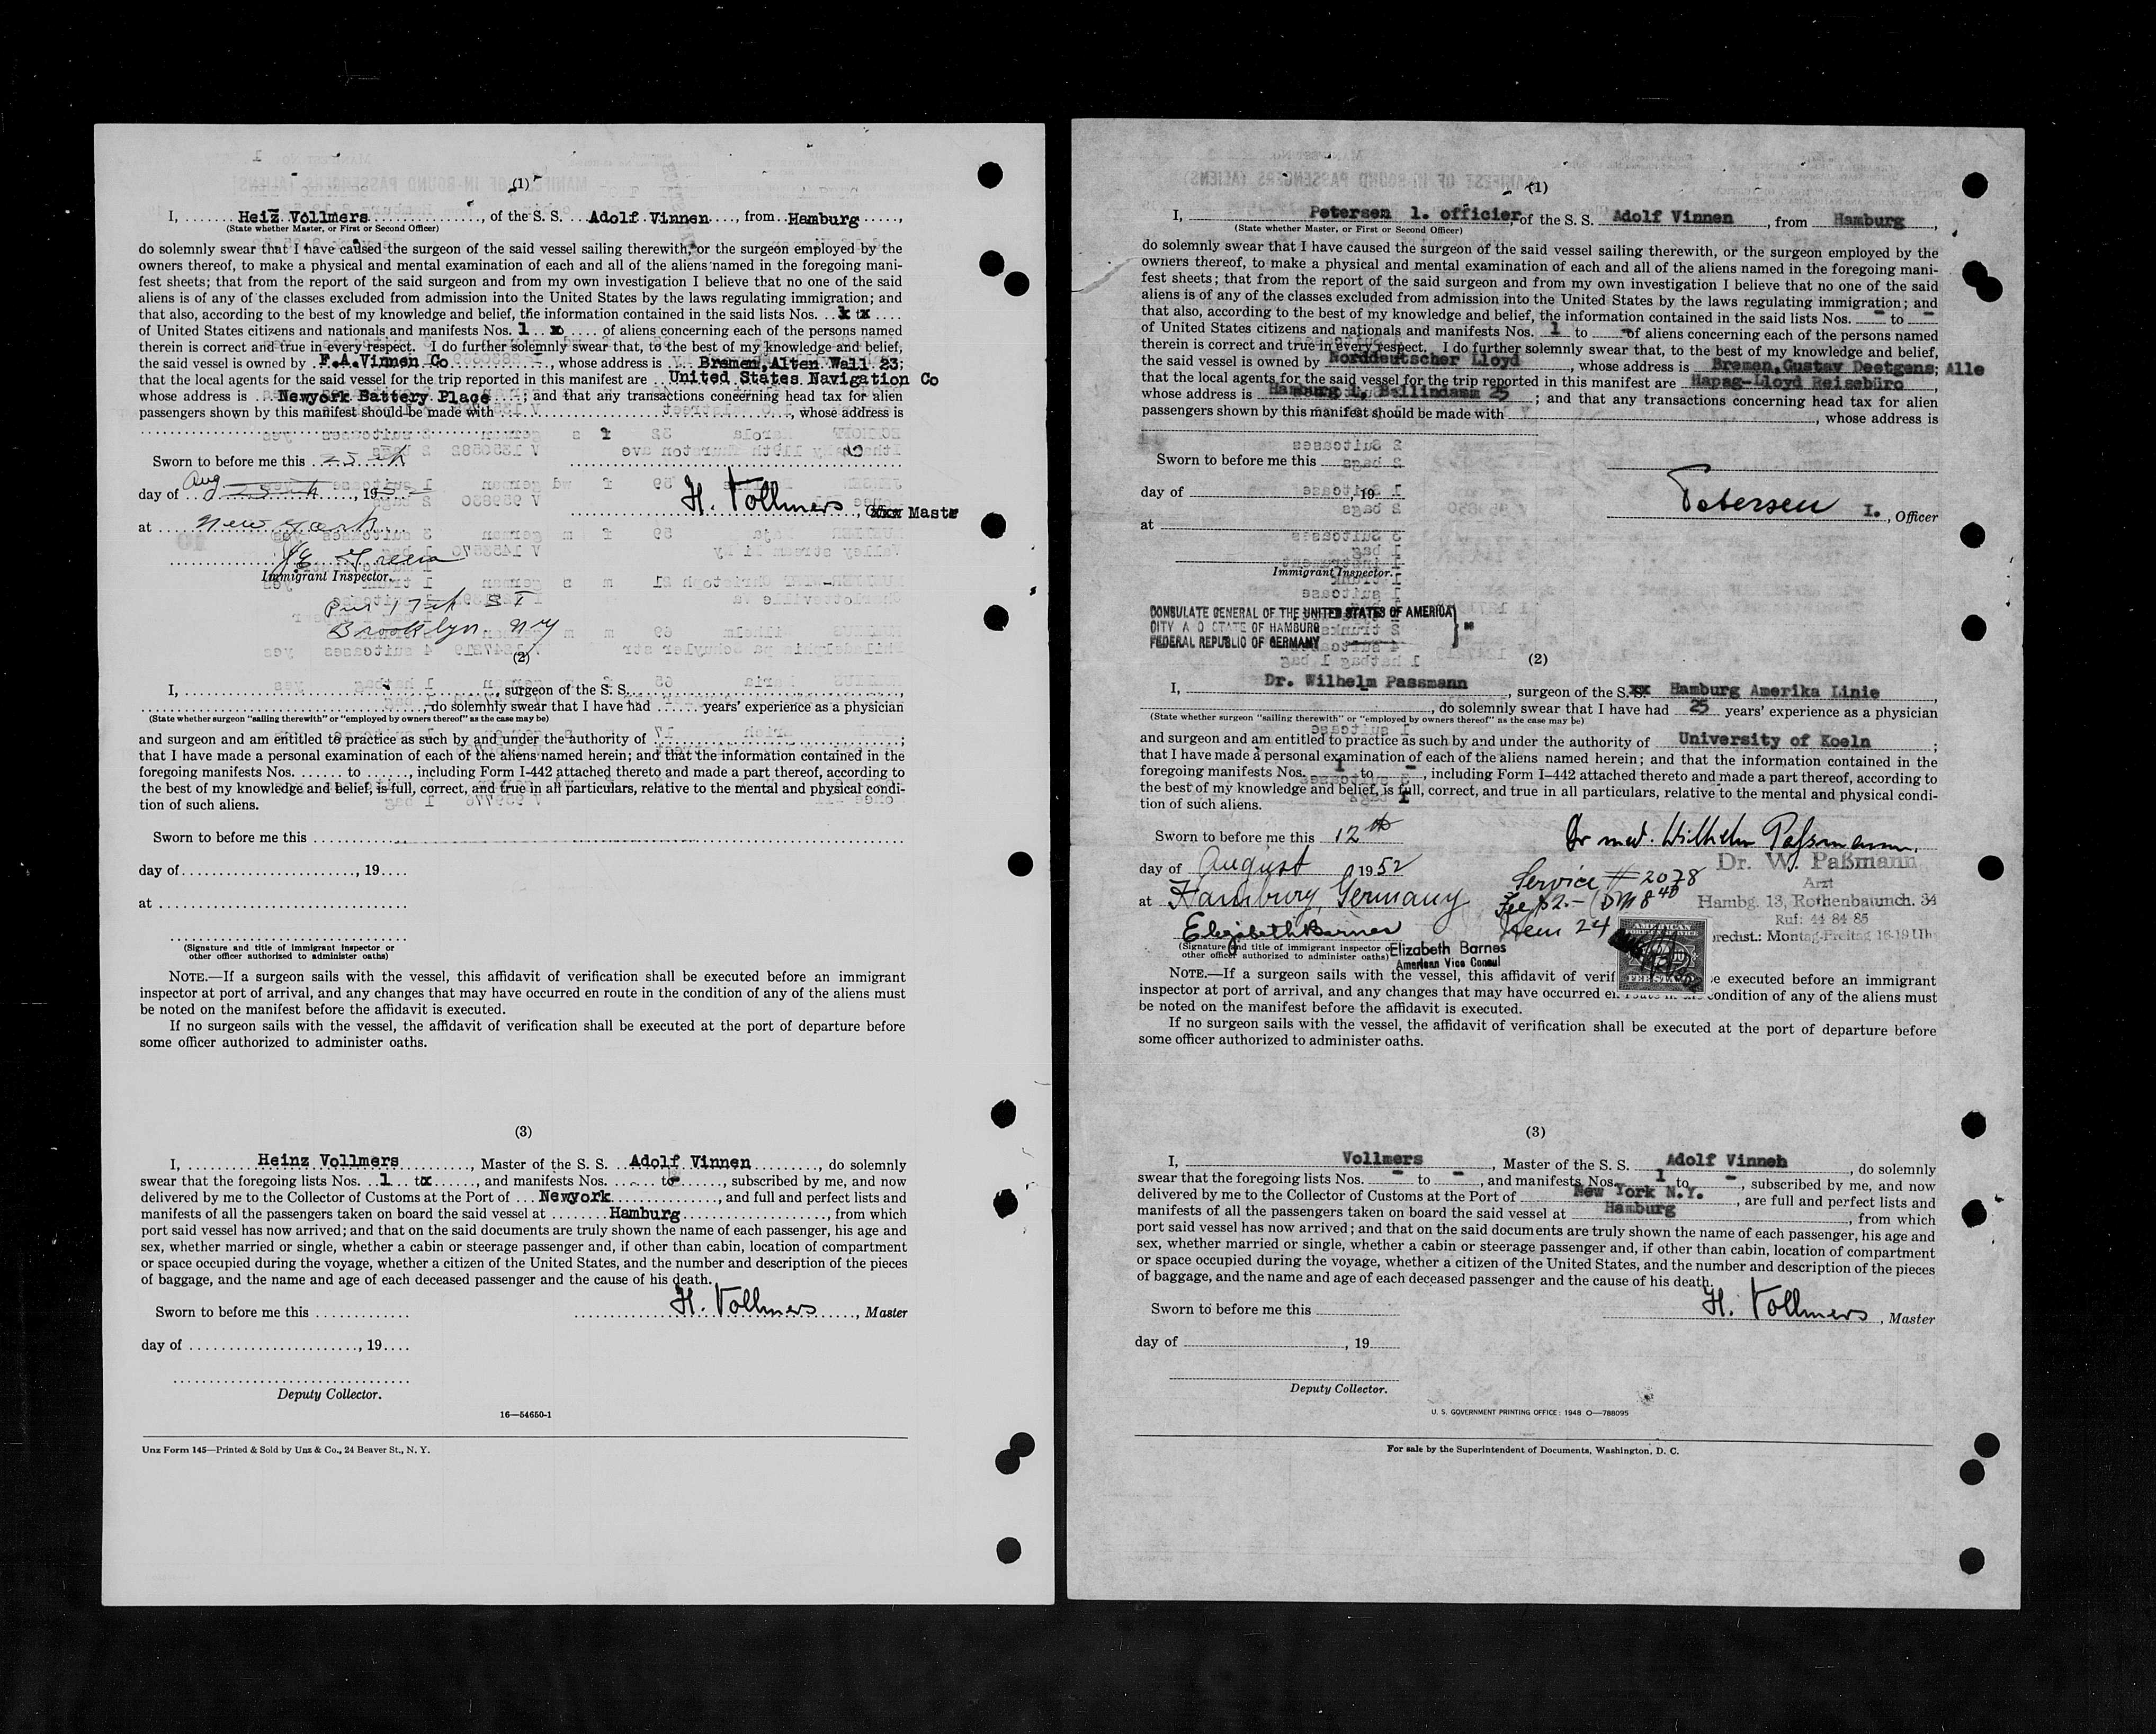 (1)
I, Heiz Vollmers, of the S. S. Adolf Vinnen, from Hamburg,
(State whether Master, or First or Second Officer)
do solemnly swear that I have caused the surgeon of the said vessel sailing therewith, or the surgeon employed by the
owners thereof, to make a physical and mental examination of each and all of the aliens named in the foregoing mani-
fest sheets; that from the report of the said surgeon and from my own investigation I believe that no one of the said
aliens is of any of the classes excluded from admission into the United States by the laws regulating immigration; and
that also, according to the best of my knowledge and belief, the information contained in the said lists Nos.
of United States citizens and nationals and manifests Nos. 1 of aliens concerning each of the persons named
therein is correct and true in every respect. I do further solemnly swear that, to the best of my knowledge and belief,
the said vessel is owned by F.A.Vinnen Co, whose address is Bremen, Alten Wall 23;
that the local agents for the said vessel for the trip reported in this manifest are United States Navigation Co
whose address is Newyork Battery Place; and that any transactions concerning head tax for alien
passengers shown by this manifest should be made with, whose address is
Sworn to before me this 25th
day of Aug, 195
H. Vollmers, Mastr
at New York
Immigrant Inspector.
Pier 17th St
Brooklyn NY
(2)
I, surgeon of the S. S.
do solemnly swear that I have had years' experience as a physician
(State whether surgeon "sailing therewith" or "employed by owners thereof" as the case may be)
and surgeon and am entitled to practice as such by and under the authority of;
that I have made a personal examination of each of the aliens named herein; and that the information contained in the
foregoing manifests Nos. to, including Form I-442 attached thereto and made a part thereof, according to
the best of my knowledge and belief, is full, correct, and true in all particulars, relative to the mental and physical condi-
tion of such aliens.
Sworn to before me this
day of, 19
at
(Signature and title of immigrant inspector or
other officer authorized to administer oaths)
NOTE.—If a surgeon sails with the vessel, this affidavit of verification shall be executed before an immigrant
inspector at port of arrival, and any changes that may have occurred en route in the condition of any of the aliens must
be noted on the manifest before the affidavit is executed.
If no surgeon sails with the vessel, the affidavit of verification shall be executed at the port of departure before
some officer authorized to administer oaths.
(3)
I, Heinz Vollmers, Master of the S. S. Adolf Vinnen, do solemnly
swear that the foregoing lists Nos. 1 to, and manifests Nos. - to -, subscribed by me, and now
delivered by me to the Collector of Customs at the Port of Newyork, and full and perfect lists and
manifests of all the passengers taken on board the said vessel at Hamburg, from which
port said vessel has now arrived; and that on the said documents are truly shown the name of each passenger, his age and
sex, whether married or single, whether a cabin or steerage passenger and, if other than cabin, location of compartment
or space occupied during the voyage, whether a citizen of the United States, and the number and description of the pieces
of baggage, and the name and age of each deceased passenger and the cause of his death.
Sworn to before me this H. Vollmers, Master
day of, 19
Deputy Collector.
16—54650-1
Unz Form 145—Printed & Sold by Unz & Co., 24 Beaver St., N. Y.
(1)
I, Petersen 1. officier of the S. S. Adolf Vinnen, from Hamburg,
(State whether Master, or First or Second Officer)
do solemnly swear that I have caused the surgeon of the said vessel sailing therewith, or the surgeon employed by the
owners thereof, to make a physical and mental examination of each and all of the aliens named in the foregoing mani-
fest sheets; that from the report of the said surgeon and from my own investigation I believe that no one of the said
aliens is of any of the classes excluded from admission into the United States by the laws regulating immigration; and
that also, according to the best of my knowledge and belief, the information contained in the said lists Nos. - to -
of United States citizens and nationals and manifests Nos. 1 to - of aliens concerning each of the persons named
therein is correct and true in every respect. I do further solemnly swear that, to the best of my knowledge and belief,
the said vessel is owned by Norddeutscher Lloyd, whose address is Bremen, Gustav Deetgens; Alle
that the local agents for the said vessel for the trip reported in this manifest are Hapag-Lloyd Reisebüro
whose address is Hamburg 1, Ballindamm 25; and that any transactions concerning head tax for alien
passengers shown by this manifest should be made with, whose address is
Sworn to before me this
day of, 19
Petersen I., Officer
at
Immigrant Inspector.
CONSULATE GENERAL OF THE UNITED STATES OF AMERICA
CITY A D STATE OF HAMBURG
FEDERAL REPUBLIC OF GERMANY
(2)
I, Dr. Wilhelm Passmann, surgeon of the S. Hamburg Amerika Linie
, do solemnly swear that I have had 25 years' experience as a physician
(State whether surgeon "sailing therewith" or "employed by owners thereof" as the case may be)
and surgeon and am entitled to practice as such by and under the authority of University of Koeln;
that I have made a personal examination of each of the aliens named herein; and that the information contained in the
foregoing manifests Nos. 1 to -, including Form I-442 attached thereto and made a part thereof, according to
the best of my knowledge and belief, is full, correct, and true in all particulars, relative to the mental and physical condi-
tion of such aliens.
Sworn to before me this 12th
Dr med. Wilhelm Paßmann.
Dr. W. Paßmann
Arzt
Hambg. 13, Rothenbaumch. 34
Ruf: 44 84 85
Sprechst.: Montag-Freitag 16-19 Uhr
day of August 1952
at Hamburg, Germany
Service # 2078
Fee $2.- (DM 8.40
Item 24
AMERICAN
FEE STAMP
Elizabeth Barnes
(Signature and title of immigrant inspector or
other officer authorized to administer oaths)
Elizabeth Barnes
American Vice Consul
NOTE.—If a surgeon sails with the vessel, this affidavit of verif e executed before an immigrant
inspector at port of arrival, and any changes that may have occurred en route in the condition of any of the aliens must
be noted on the manifest before the affidavit is executed.
If no surgeon sails with the vessel, the affidavit of verification shall be executed at the port of departure before
some officer authorized to administer oaths.
(3)
I, Vollmers, Master of the S. S. Adolf Vinneh, do solemnly
swear that the foregoing lists Nos. - to -, and manifests Nos. 1 to -, subscribed by me, and now
delivered by me to the Collector of Customs at the Port of New York N.Y., are full and perfect lists and
manifests of all the passengers taken on board the said vessel at Hamburg, from which
port said vessel has now arrived; and that on the said documents are truly shown the name of each passenger, his age and
sex, whether married or single, whether a cabin or steerage passenger and, if other than cabin, location of compartment
or space occupied during the voyage, whether a citizen of the United States, and the number and description of the pieces
of baggage, and the name and age of each deceased passenger and the cause of his death.
Sworn to before me this H. Vollmers, Master
day of, 19
Deputy Collector.
U. S. GOVERNMENT PRINTING OFFICE: 1948 O—788095
For sale by the Superintendent of Documents, Washington, D. C.